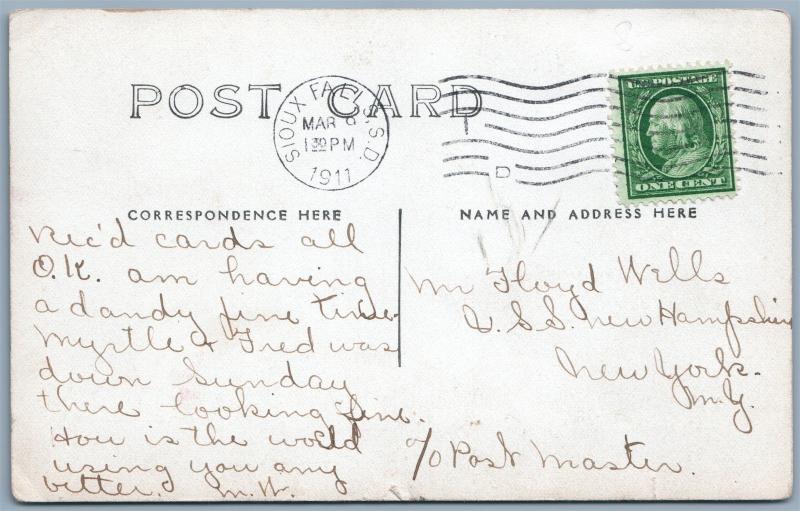 POST CARD
SIOUX FALLS, S.D.
MAR 9
1 30 PM
1911
D
U.S. POSTAGE
ONE CENT
CORRESPONDENCE HERE
NAME AND ADDRESS HERE
Rec'd cards all
O.K. am having
a dandy fine time.
Myrtle & Fred was
down Sunday
there looking fine.
How is the world
using you any
better. M.W.
Mr Floyd Wells
U.S.S. New Hampshire
New York.
N.Y.
c/o Post Master.